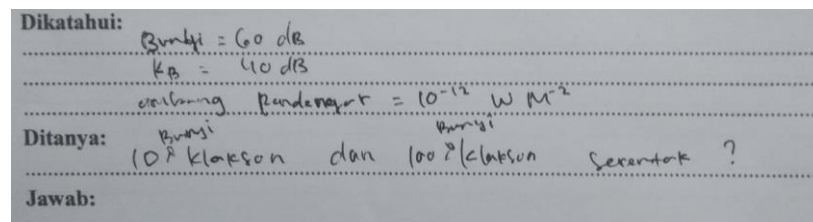 Dikatahui:
Bunyi = 60 dB
KB = 40 dB
ambang pendengar = 10⁻¹² W M⁻²
Ditanya:
Bunyi Bunyi
10 klakson dan 100 klakson serentak ?
Jawab: